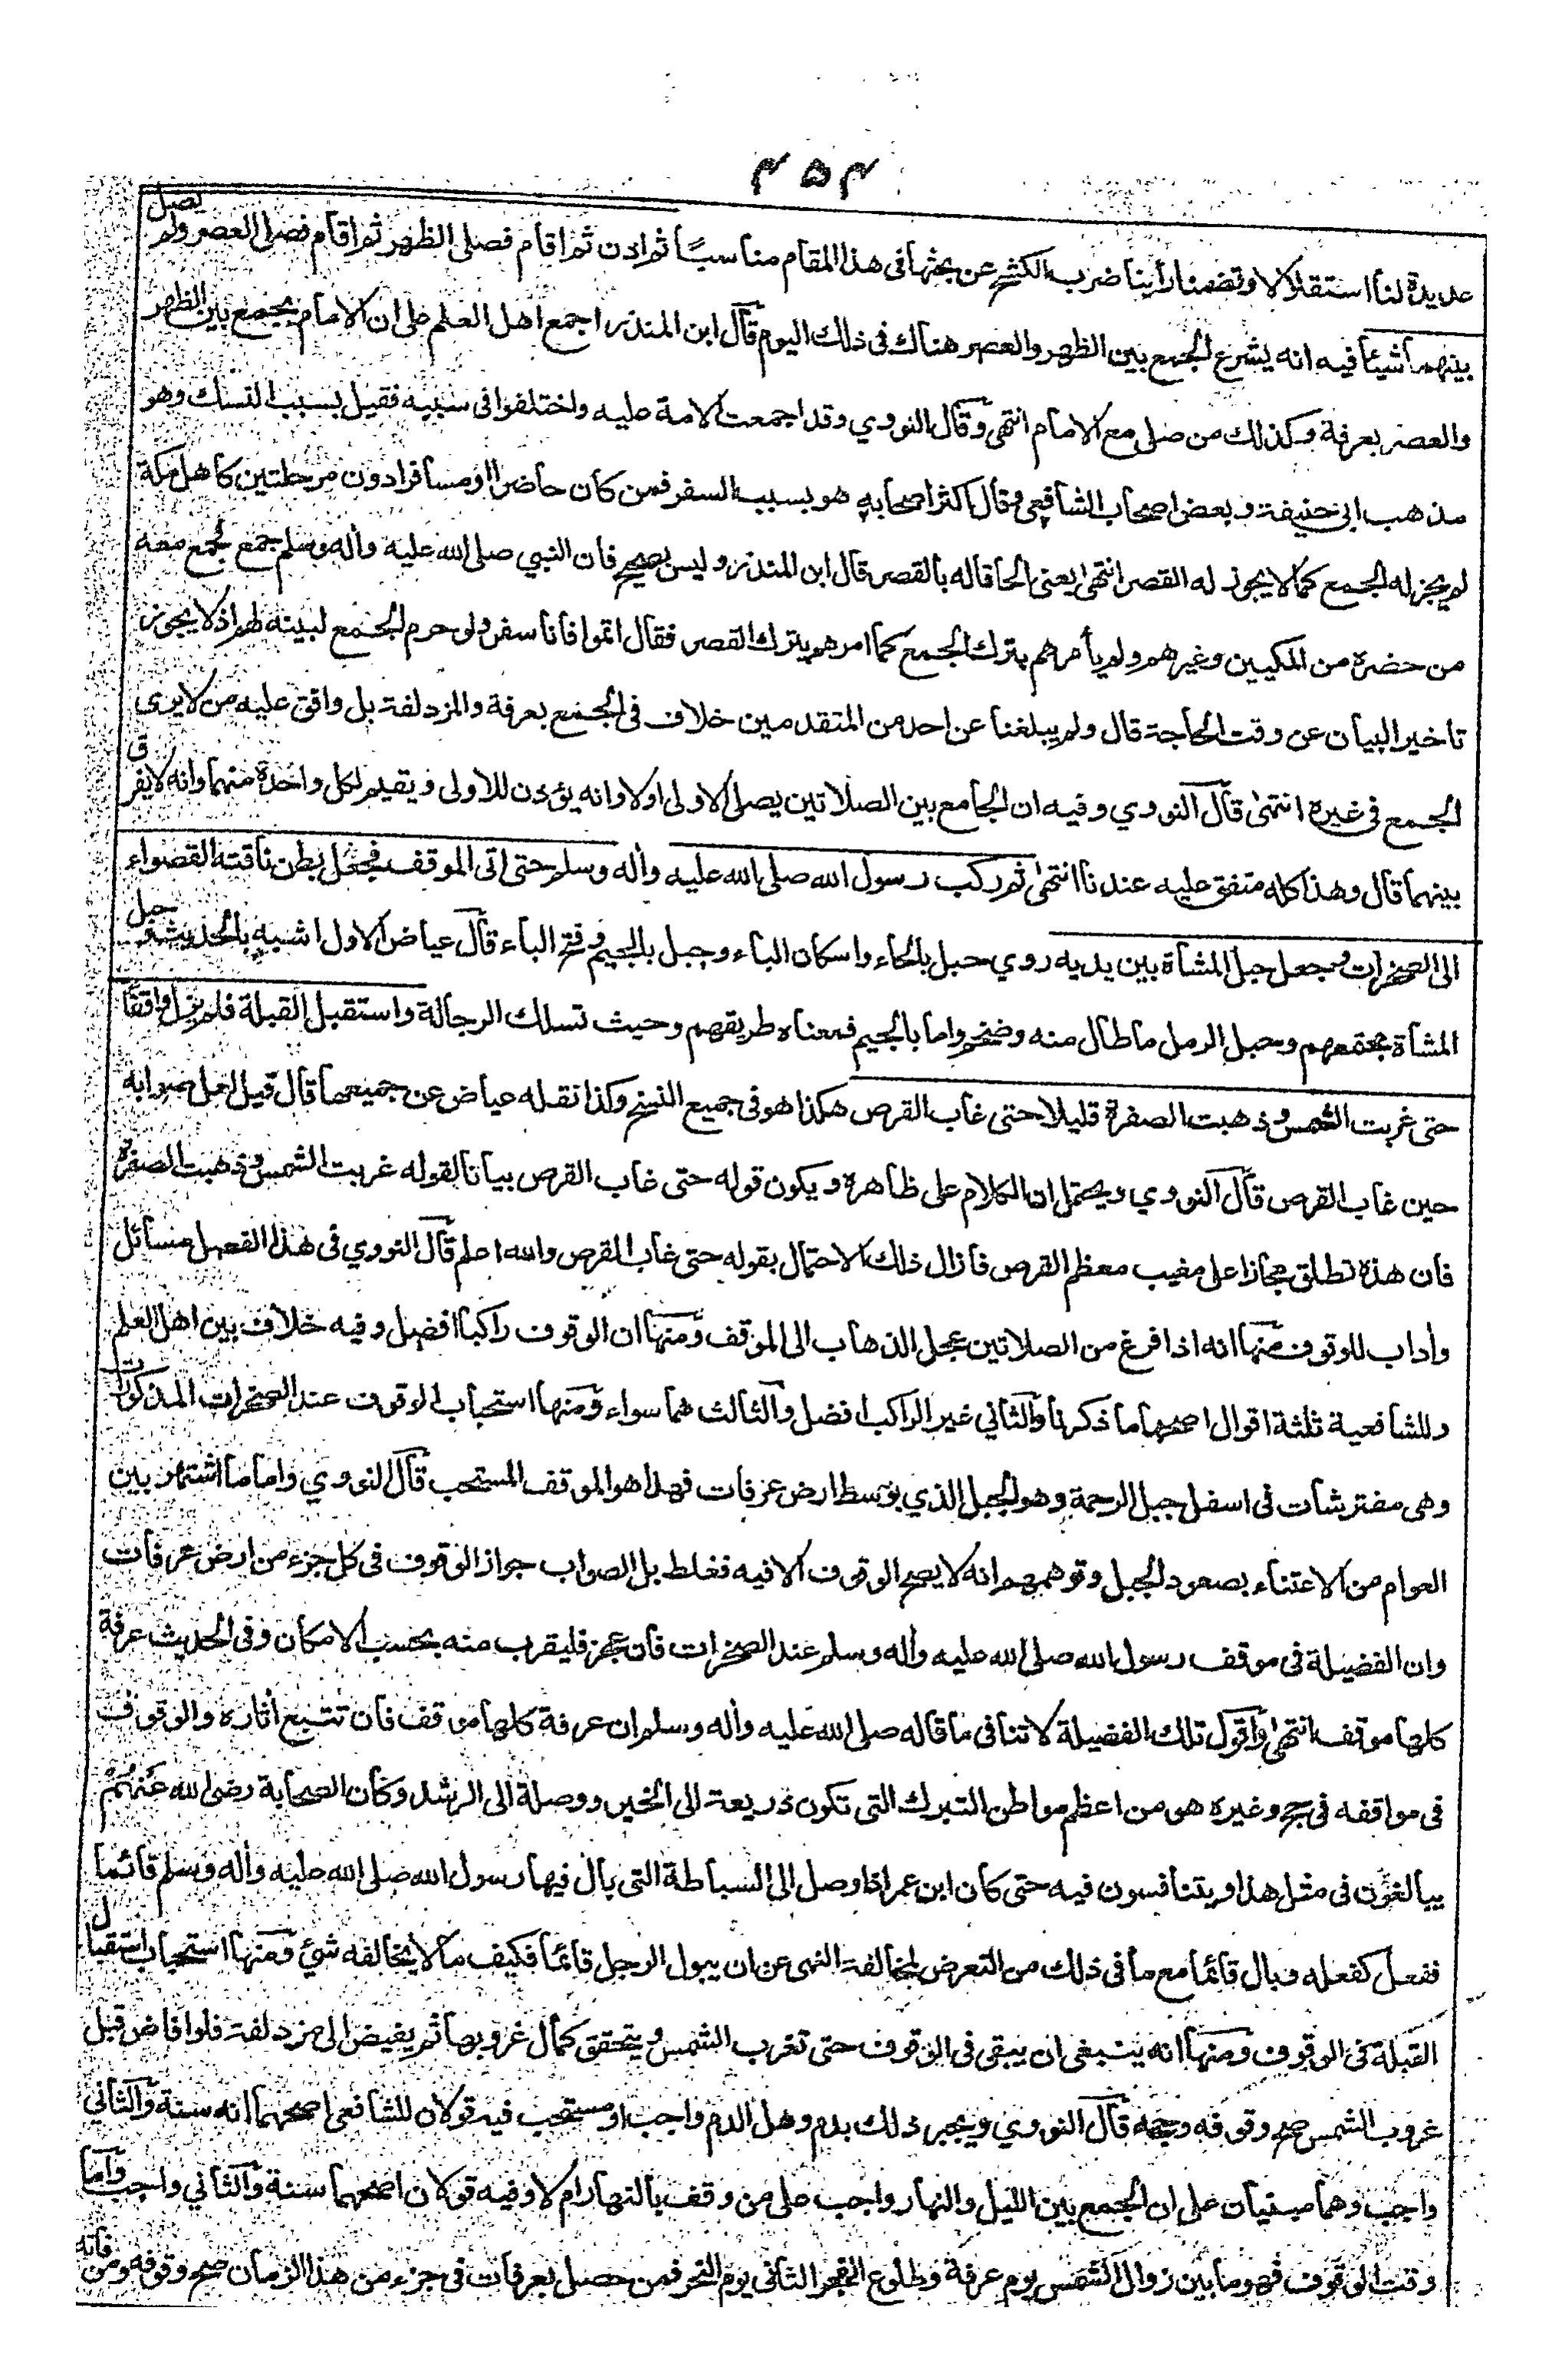 ۴۵۴
عديدة لنا استقلالا وتضمنا رأينا ضرب الكشح عن بحثها فى هذا المقام مناسبًا ثم اذن ثم اقام فصلى الظهر ثم اقام فصلى العصر ولم يصل
بينهما شيئا فيه انه يشرع الجمع بين الظهر والعصر هناك فى ذلك اليوم قال ابن المنذر اجمع اهل العلم على ان الامام يجمع بين الظهر
والعصر بعرفة وكذلك من صلى مع الامام انتهى وقال النووي وقد اجمعت الامة عليه واختلفوا فى سببه فقيل بسبب النسك وهو
مذهب ابى حنيفة وبعض اصحاب الشافعى وقال اكثر اصحابه هو بسبب السفر فمن كان حاضرا او مسافرا دون مرحلتين كاهل مكة
لم يجز له الجمع كما لا يجوز له القصر انتهى يعنى الحاقا له بالقصر قال ابن المنذر وليس بصحيح فان النبي صلى الله عليه وأله وسلم جمع فجمع معه
من حضره من المكيين وغيرهم ولم يأمرهم بترك الجمع كما امرهم بترك القصر فقال اتموا فانا سفر ولو حرم الجمع لبينه لهم اذ لا يجوز
تاخير البيان عن وقت الحاجة قال ولم يبلغنا عن احد من المتقدمين خلاف فى الجمع بعرفة والمزدلفة بل وافق عليه من لا يرى
الجمع فى غيره انتهى قال النووي وفيه ان الجامع بين الصلاتين يصلى الاولى اولا وانه يؤذن للاولى ويقيم لكل واحدة منهما وانه لا يفرق
بينهما قال وهذا كله متفق عليه عندنا انتهى ثم ركب رسول الله صلى الله عليه وأله وسلم حتى اتى الموقف فجعل بطن ناقته القصواء
الى الصخرات وجعل حبل المشاة بين يديه روي حبل بالحاء واسكان الباء وجبل بالجيم وفتح الباء قال عياض الاول اشبه بالحديث وحبل
المشاة مجتمعهم وحبل الرمل ما طال منه وضخم واما بالجيم فمعناه طريقهم وحيث تسلك الرجالة واستقبل القبلة فلم يزل واقفًا
حتى غربت الشمس وذهبت الصفرة قليلا حتى غاب القرص هكذا هو فى جميع النسخ وكذا نقله عياض عن جميعها قال قيل لعل صوابه
حين غاب القرص قال النووي ويحتمل ان الكلام على ظاهره ويكون قوله حتى غاب القرص بيانا لقوله غربت الشمس وذهبت الصفرة
فان هذه تطلق مجازا على مغيب معظم القرص فازال ذلك الاحتمال بقوله حتى غاب القرص والله اعلم قال النووي فى هذا الفصل مسائل
وأداب للوقوف منها انه اذا فرغ من الصلاتين عجل الذهاب الى الموقف ومنها ان الوقوف راكبا افضل وفيه خلاف بين اهل العلم
وللشافعية ثلثة اقوال اصحها ما ذكرنا والثاني غير الراكب افضل والثالث هما سواء ومنها استحباب الوقوف عند الصخرات المذكورات
وهى مفترشات فى اسفل جبل الرحمة وهو الجبل الذي بوسط ارض عرفات فهذا هو الموقف المستحب قال النووي واما ما اشتهر بين
العوام من الاعتناء بصعود الجبل وتوهمهم انه لا يصح الوقوف الا فيه فغلط بل الصواب جواز الوقوف فى كل جزء من ارض عرفات
وان الفضيلة فى موقف رسول الله صلى الله عليه وأله وسلم عند الصخرات فان عجز فليقرب منه بحسب الامكان وفى الحديث عرفة
كلها موقف انتهى واقول تلك الفضيلة لا تنافى ما قاله صلى الله عليه وأله وسلم ان عرفة كلها موقف فان تتبع أثاره والوقوف
فى مواقفه فى حج وغيره هو من اعظم مواطن التبرك التى تكون ذريعة الى الخير ووصلة الى الرشد وكان الصحابة رضى الله عنهم
يبالغون فى مثل هذا ويتنافسون فيه حتى كان ابن عمر اذا وصل الى السباطة التى بال فيها رسول الله صلى الله عليه وأله وسلم قائما
ففعل كفعله وبال قائما مع ما فى ذلك من التعرض لمخالفة النهى عن ان يبول الرجل قائما فكيف ما لا يخالفه شئ ومنها استحباب استقبال
القبلة فى الوقوف ومنها انه ينبغى ان يبقى فى الوقوف حتى تغرب الشمس ويتحقق كمال غروبها ثم يفيض الى مزدلفة فلو افاض قبل
غروب الشمس صح وقوفه وحجه قال النووي ويجبر ذلك بدم وهل الدم واجب او مستحب فيه قولان للشافعى اصحهما انه سنة والثانى
واجب وهما مبنيان على ان الجمع بين الليل والنهار واجب على من وقف بالنهار ام لا وفيه قولان اصحهما سنة والثاني واجب واما
وقت الوقوف فهو ما بين زوال الشمس يوم عرفة وطلوع الفجر الثانى يوم النحر فمن حصل بعرفات فى جزء من هذا الزمان صح وقوفه ومن فاته